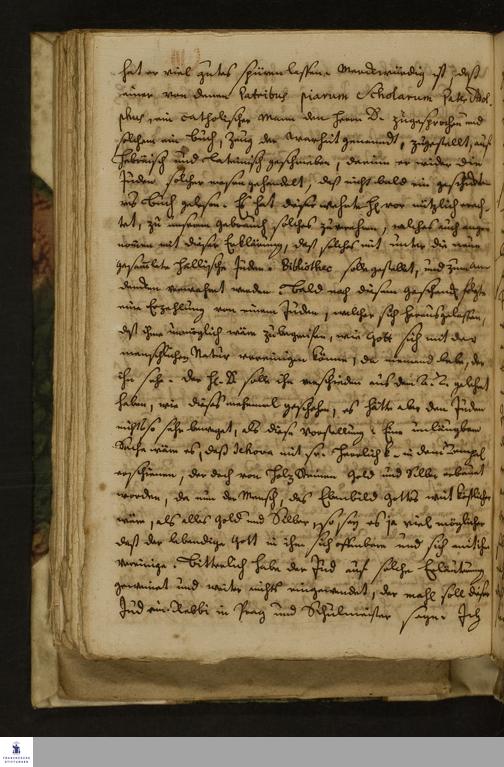 hat er viel gutes spüren lassen. Merckwürdig ist, daß
einer von denen Patribus piarum Scholarum Pater Adol
phus, ein Catholischer Mann den Herrn D. zugesprochen und
solchem ein Buch, Zeug der Warheit genannt, zugestellt, auf
Hebräisch und Lateinisch geschrieben, darinn er wider die
Juden solcher massen gehandelt, daß nicht bald ein
Buch gelesen. Es hat dieser H. vor nützlich erach
tet, zu unserm gebrauch solches zu verehren, welches auch ange
nommen mit dieser Erklärung, daß solches mit unter die neue
gesamlete Hallische Juden-Bibliothec solle gestellet, und zum an
dencken verwahret werden. Bald nach diesem geschencke folgte
eine Erzehlung von einem Juden, welcher sich herausgelassen,
daß ihme unmöglich wäre zubegreiffen, wie Gott sich mit der
menschlichen Natur vereinigen könne, da niemand lebe, der
ihn sehe. Der H. D. solle ihn verschieden aus dem A. T. gelehret
haben, wie dieses mehrmal geschehen, es hätte aber den Juden
nichts so sehr beweget, als diese Vorstellung: Eine unläugbare
Sache wäre es, daß Jehova mit sr. Herrlichk. in dem Tempel
erschienen, der doch von Holz Steinen Gold und Silber erbauet
worden, da nun der Mensch, das Ebenbild Gottes weit köstlicher
wäre, als alles Gold und Silber, so sey es ja viel möglicher
daß der lebendige Gott in ihm sich offenbare und sich mit ihm
vereinige. Bitterlich habe der Jud auf solche Erläuterung
geweinet und weiter nichts eingewendet, der mahl soll dieser
Jud ein Rabbi in Prag und Schulmeister seyn. Ich
FRANCKESCHE
STIFTUNGEN